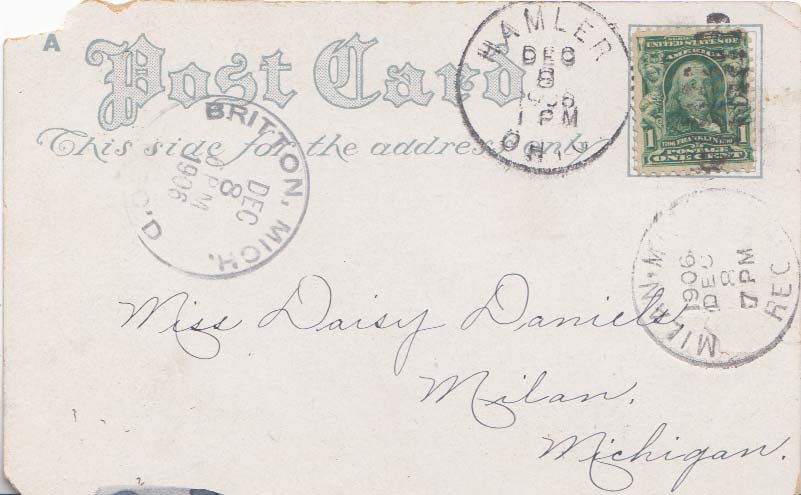 A
Post Card
This side for the address only.
HAMLER
DEC
8
1906
1 PM
OHIO
UNITED STATES OF
1
1706 FRANKLIN 1790
POSTAGE
ONE CENT
BRITTON, MICH.
DEC
8
PM
1906
C'D
MILAN, M
1906
DEC
8
7 PM
REC
Miss Daisy Daniels.
Milan.
Michigan.